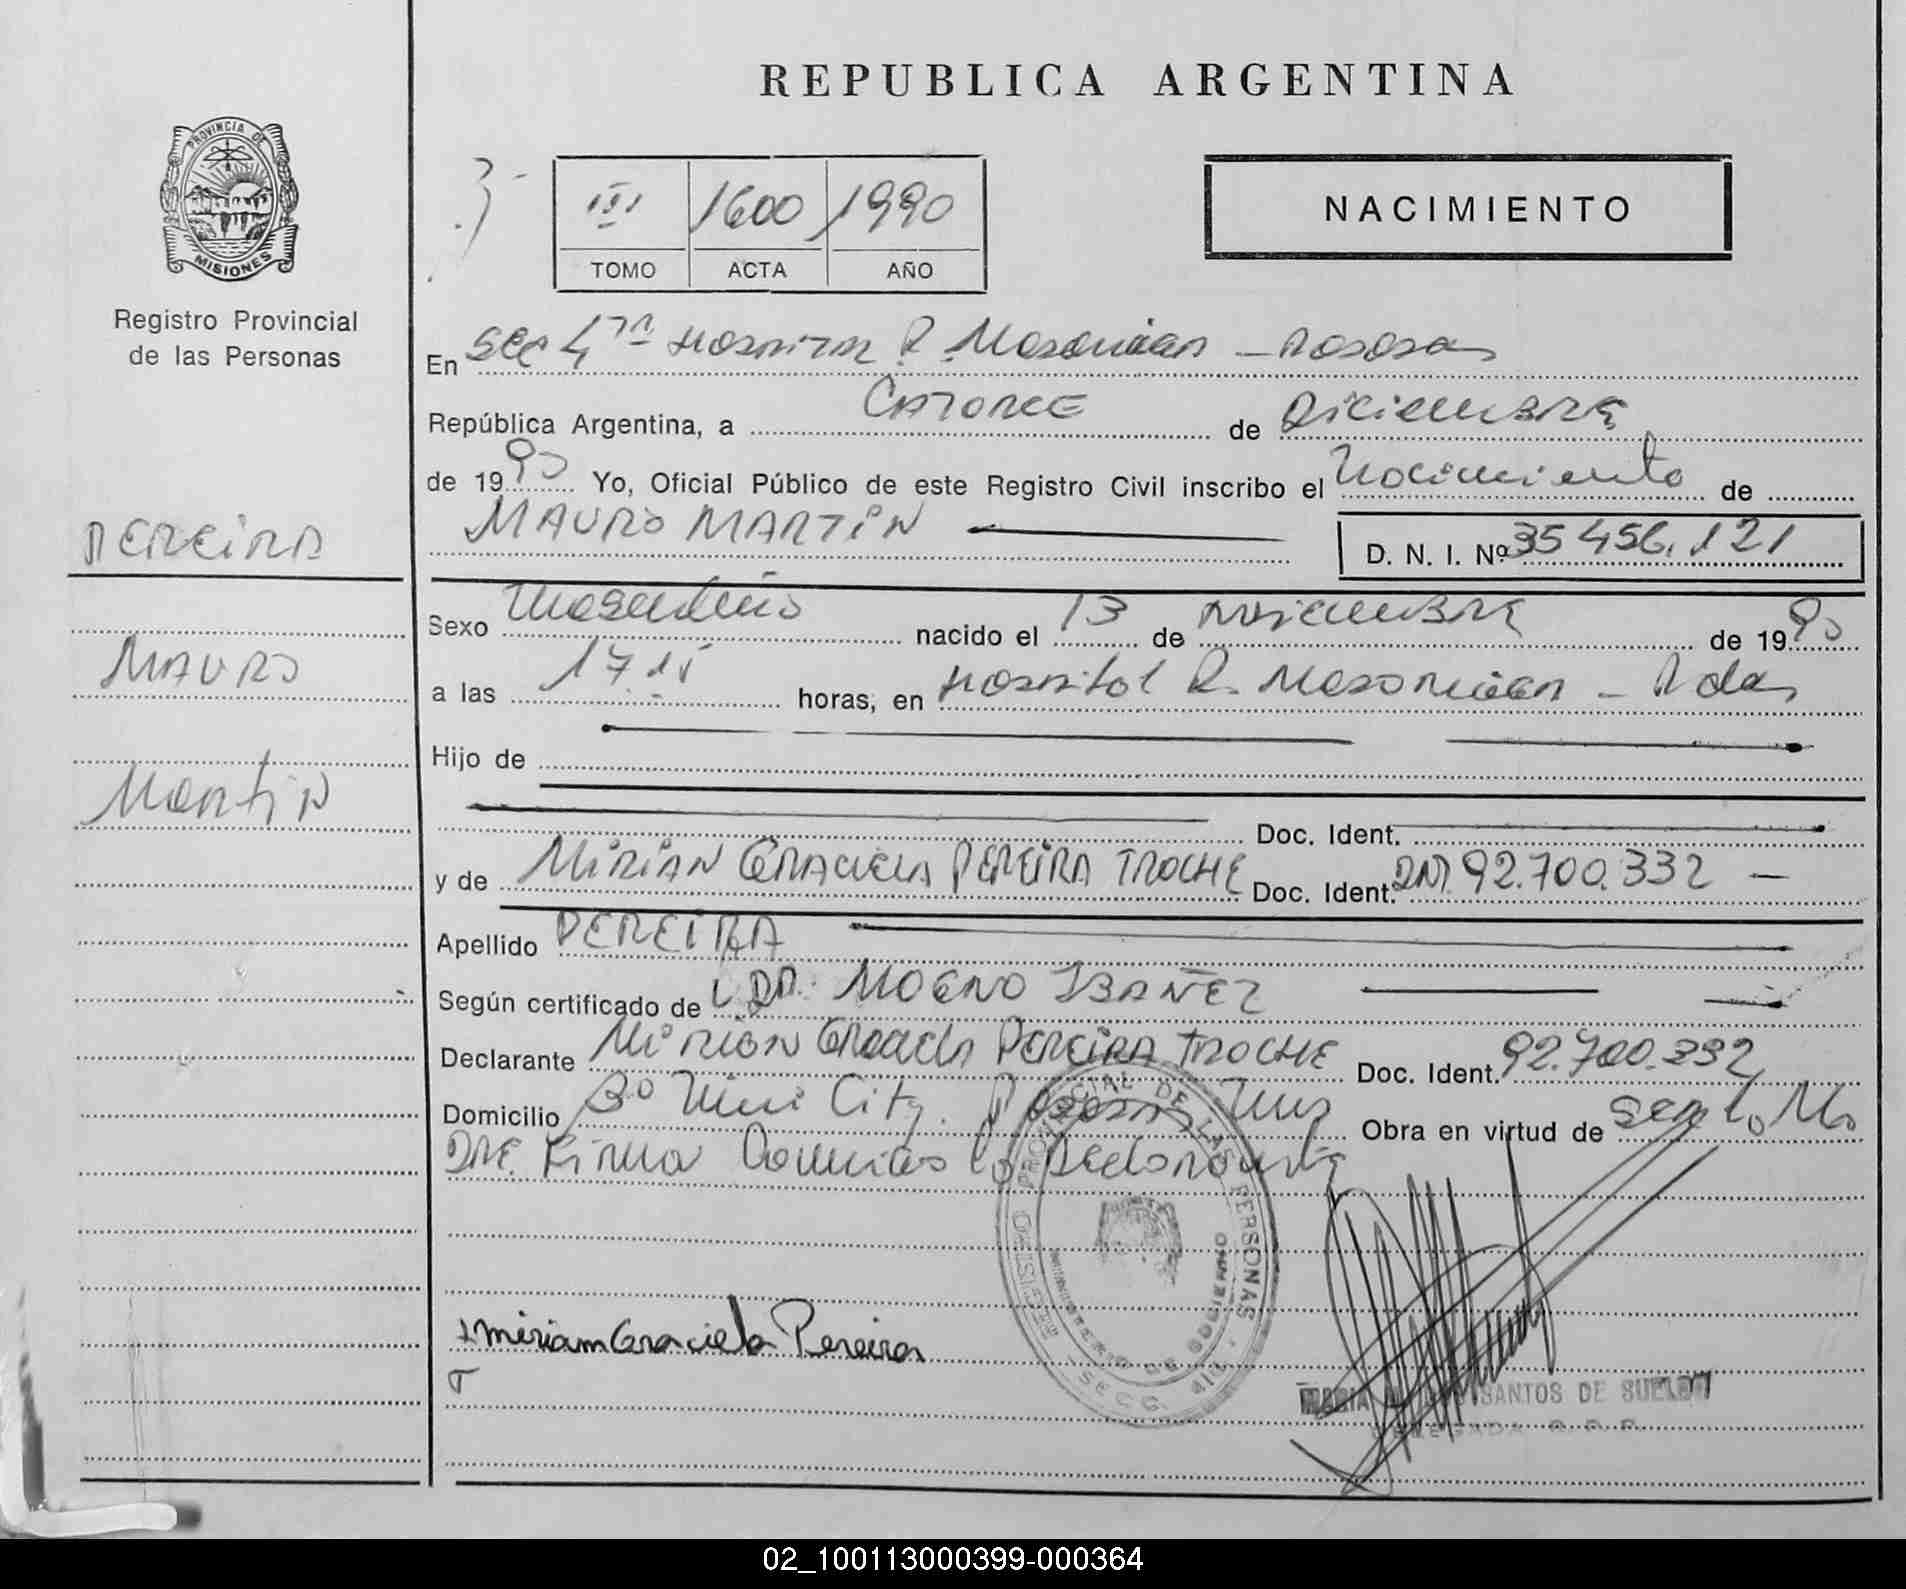 REPUBLICA ARGENTINA
PROVINCIA DE
MISIONES
Registro Provincial
de las Personas
III 1600 1990
TOMO ACTA AÑO
NACIMIENTO
En Sec 4ta Hospital R. Madariaga - Posadas
República Argentina, a CATORCE de Diciembre
de 1990 Yo, Oficial Público de este Registro Civil inscribo el Nacimiento de
MAURO MARTIN
D. N. I. Nº 35 456.121
PEREIRA
MAURO
Martin
Sexo Masculino nacido el 13 de Diciembre de 1990
a las 17 15 horas, en Hospital R. Madariaga - Pdas
Hijo de
Doc. Ident.
y de MIRIAN GRACIELA PEREIRA TROCHE Doc. Ident. DNI. 92.700.332
Apellido PEREIRA
Según certificado de DR. IBAÑEZ
Declarante MIRIAN Graciela PEREIRA TROCHE Doc. Ident. 92.700.332
Domicilio Bº Mini City. Posadas Mns Obra en virtud de
Firma la Declarante
PROVINCIAL DE LAS PERSONAS
MINISTERIO DE GOBIERNO
REGISTRO
SECC.
Miriam Graciela Pereira
T
MARIA SANTOS DE
DELEGADA R. P. P.
02_100113000399-000364